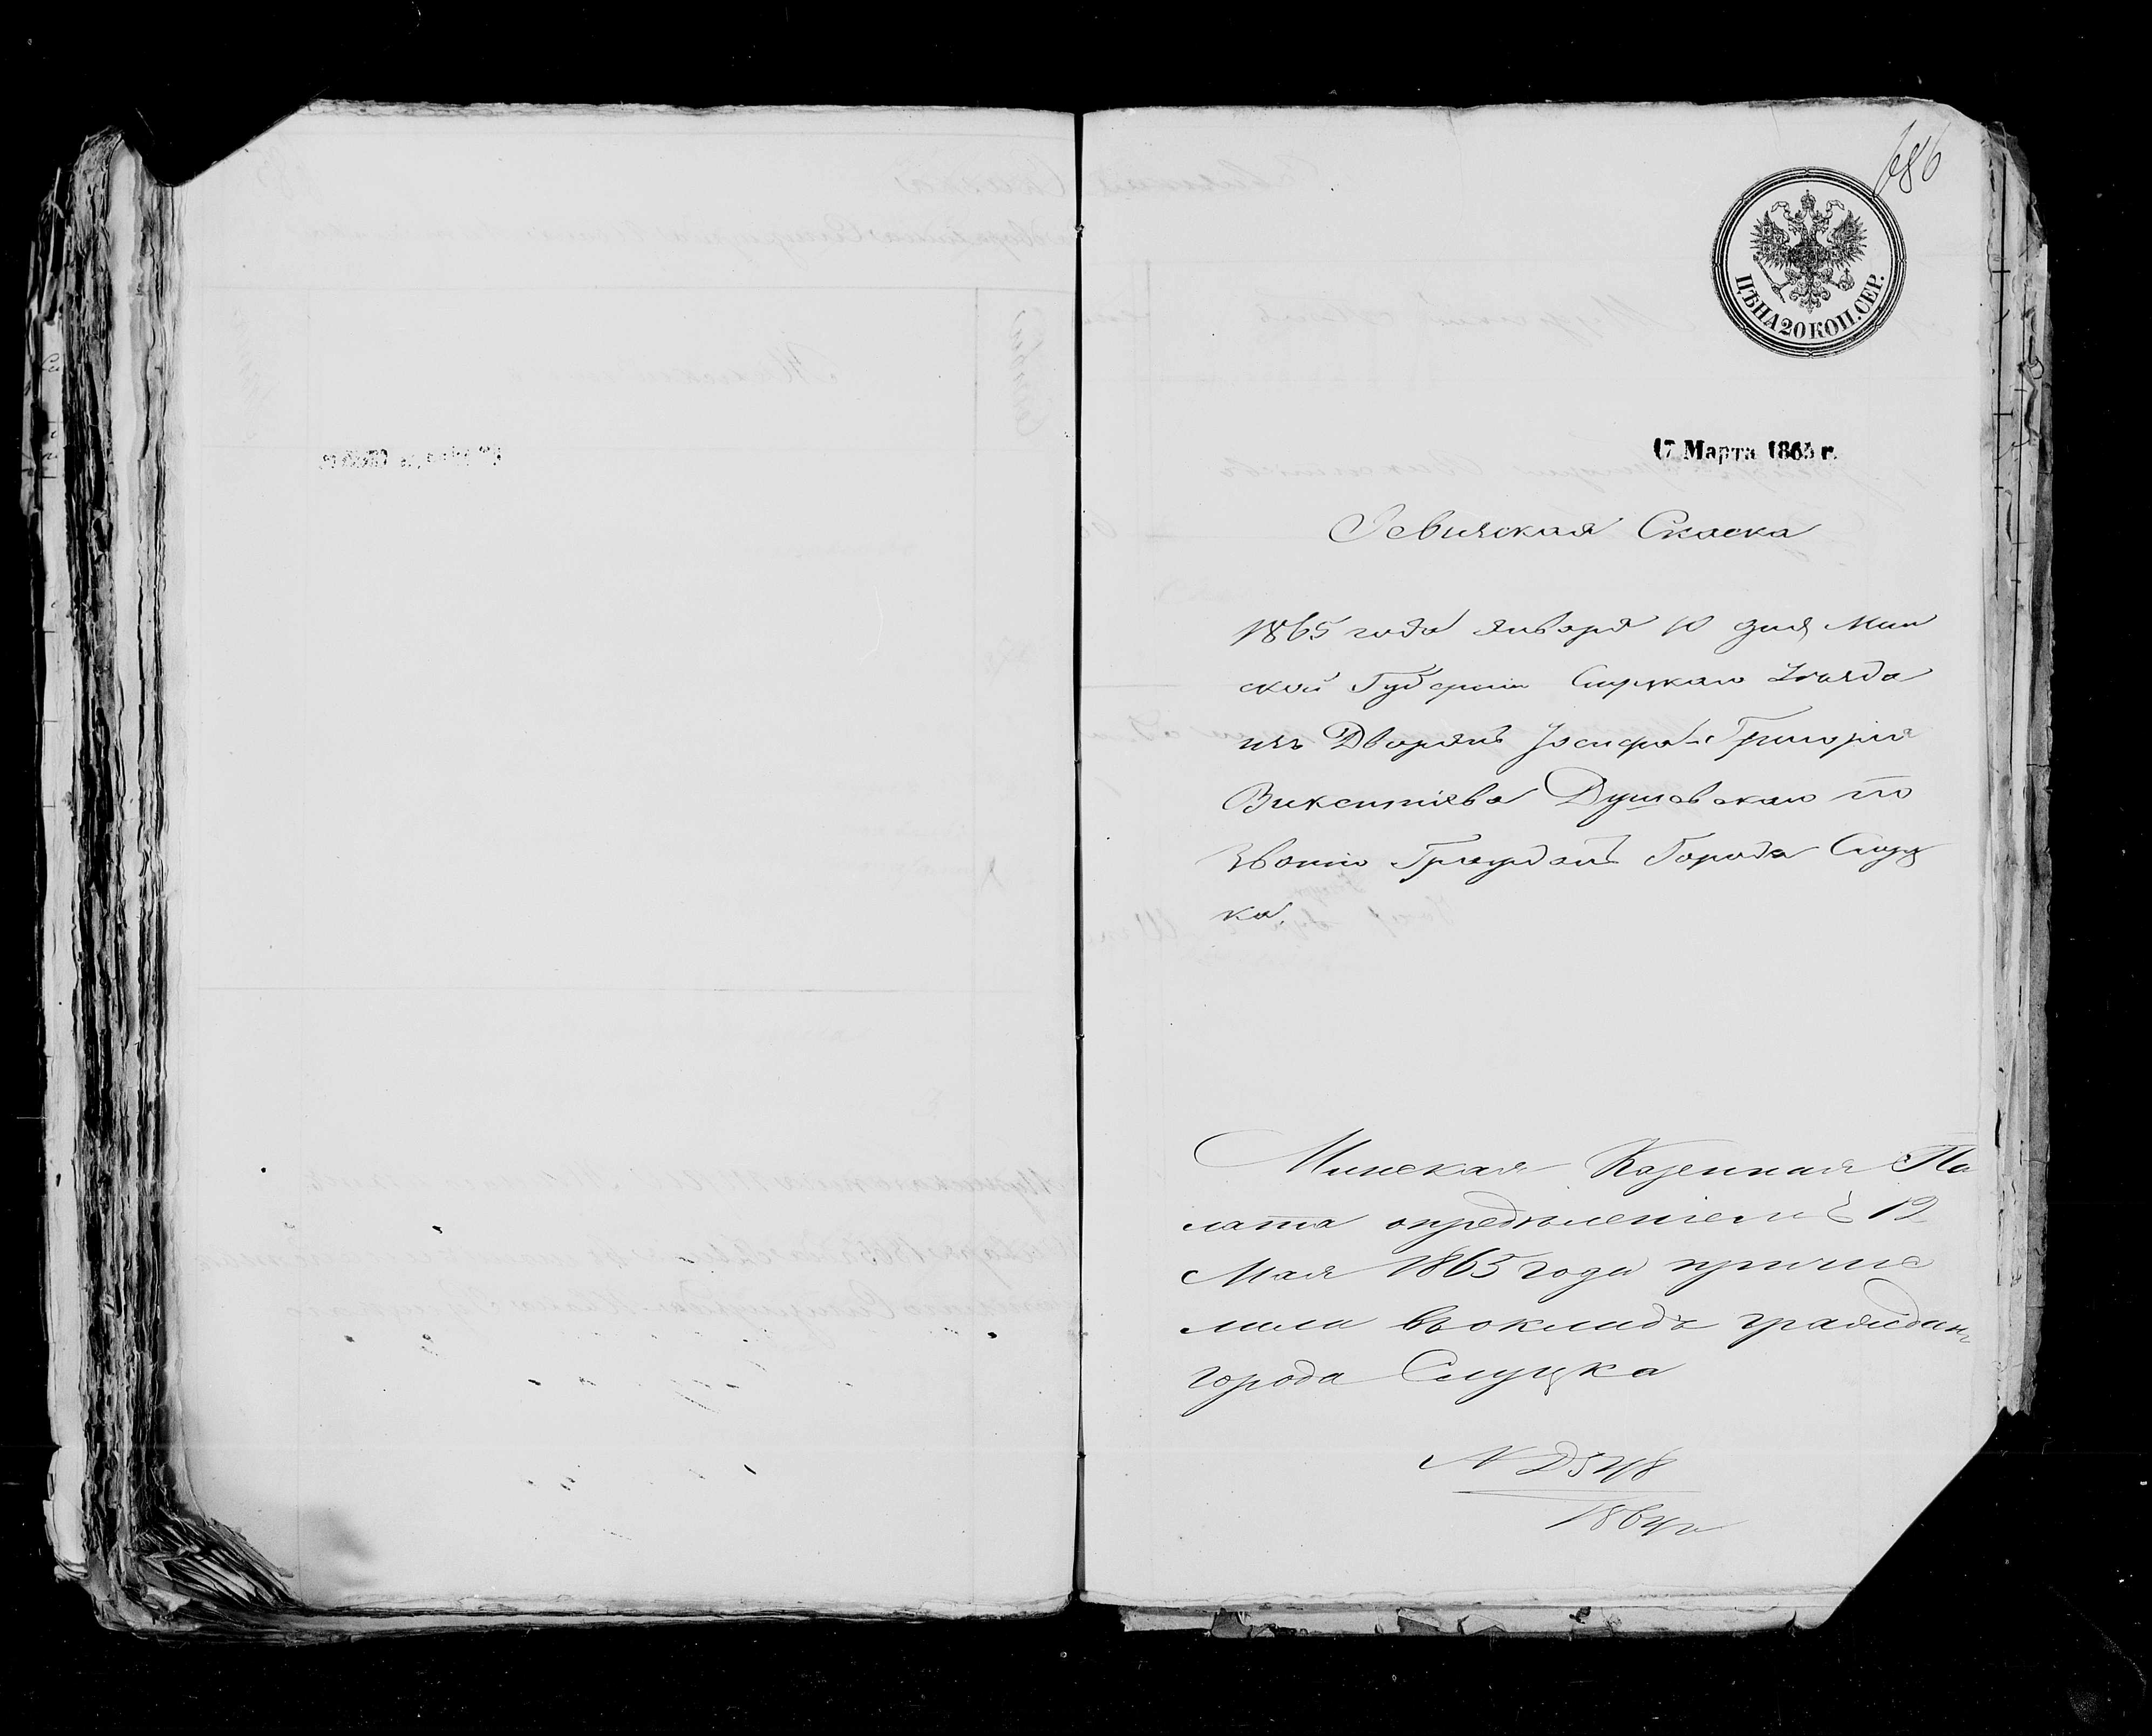 686
ЦѢНА 20 КОП. СЕР.
17 Марта 1865 г.
Ревизская Скаска
1865 года января 10 дня Мин
ской Губернии Слуцкаго Уезда
изъ Дворянъ Іосифа-Григорія
Викентіева Душевскаго по
Званію Гражданъ Города Слуц
ка.
Минская Казенная Па
лата определеніемъ 12
Мая 1865 года причис
лила въ окладъ гражданъ
города Слуцка
N 2548
1864 г